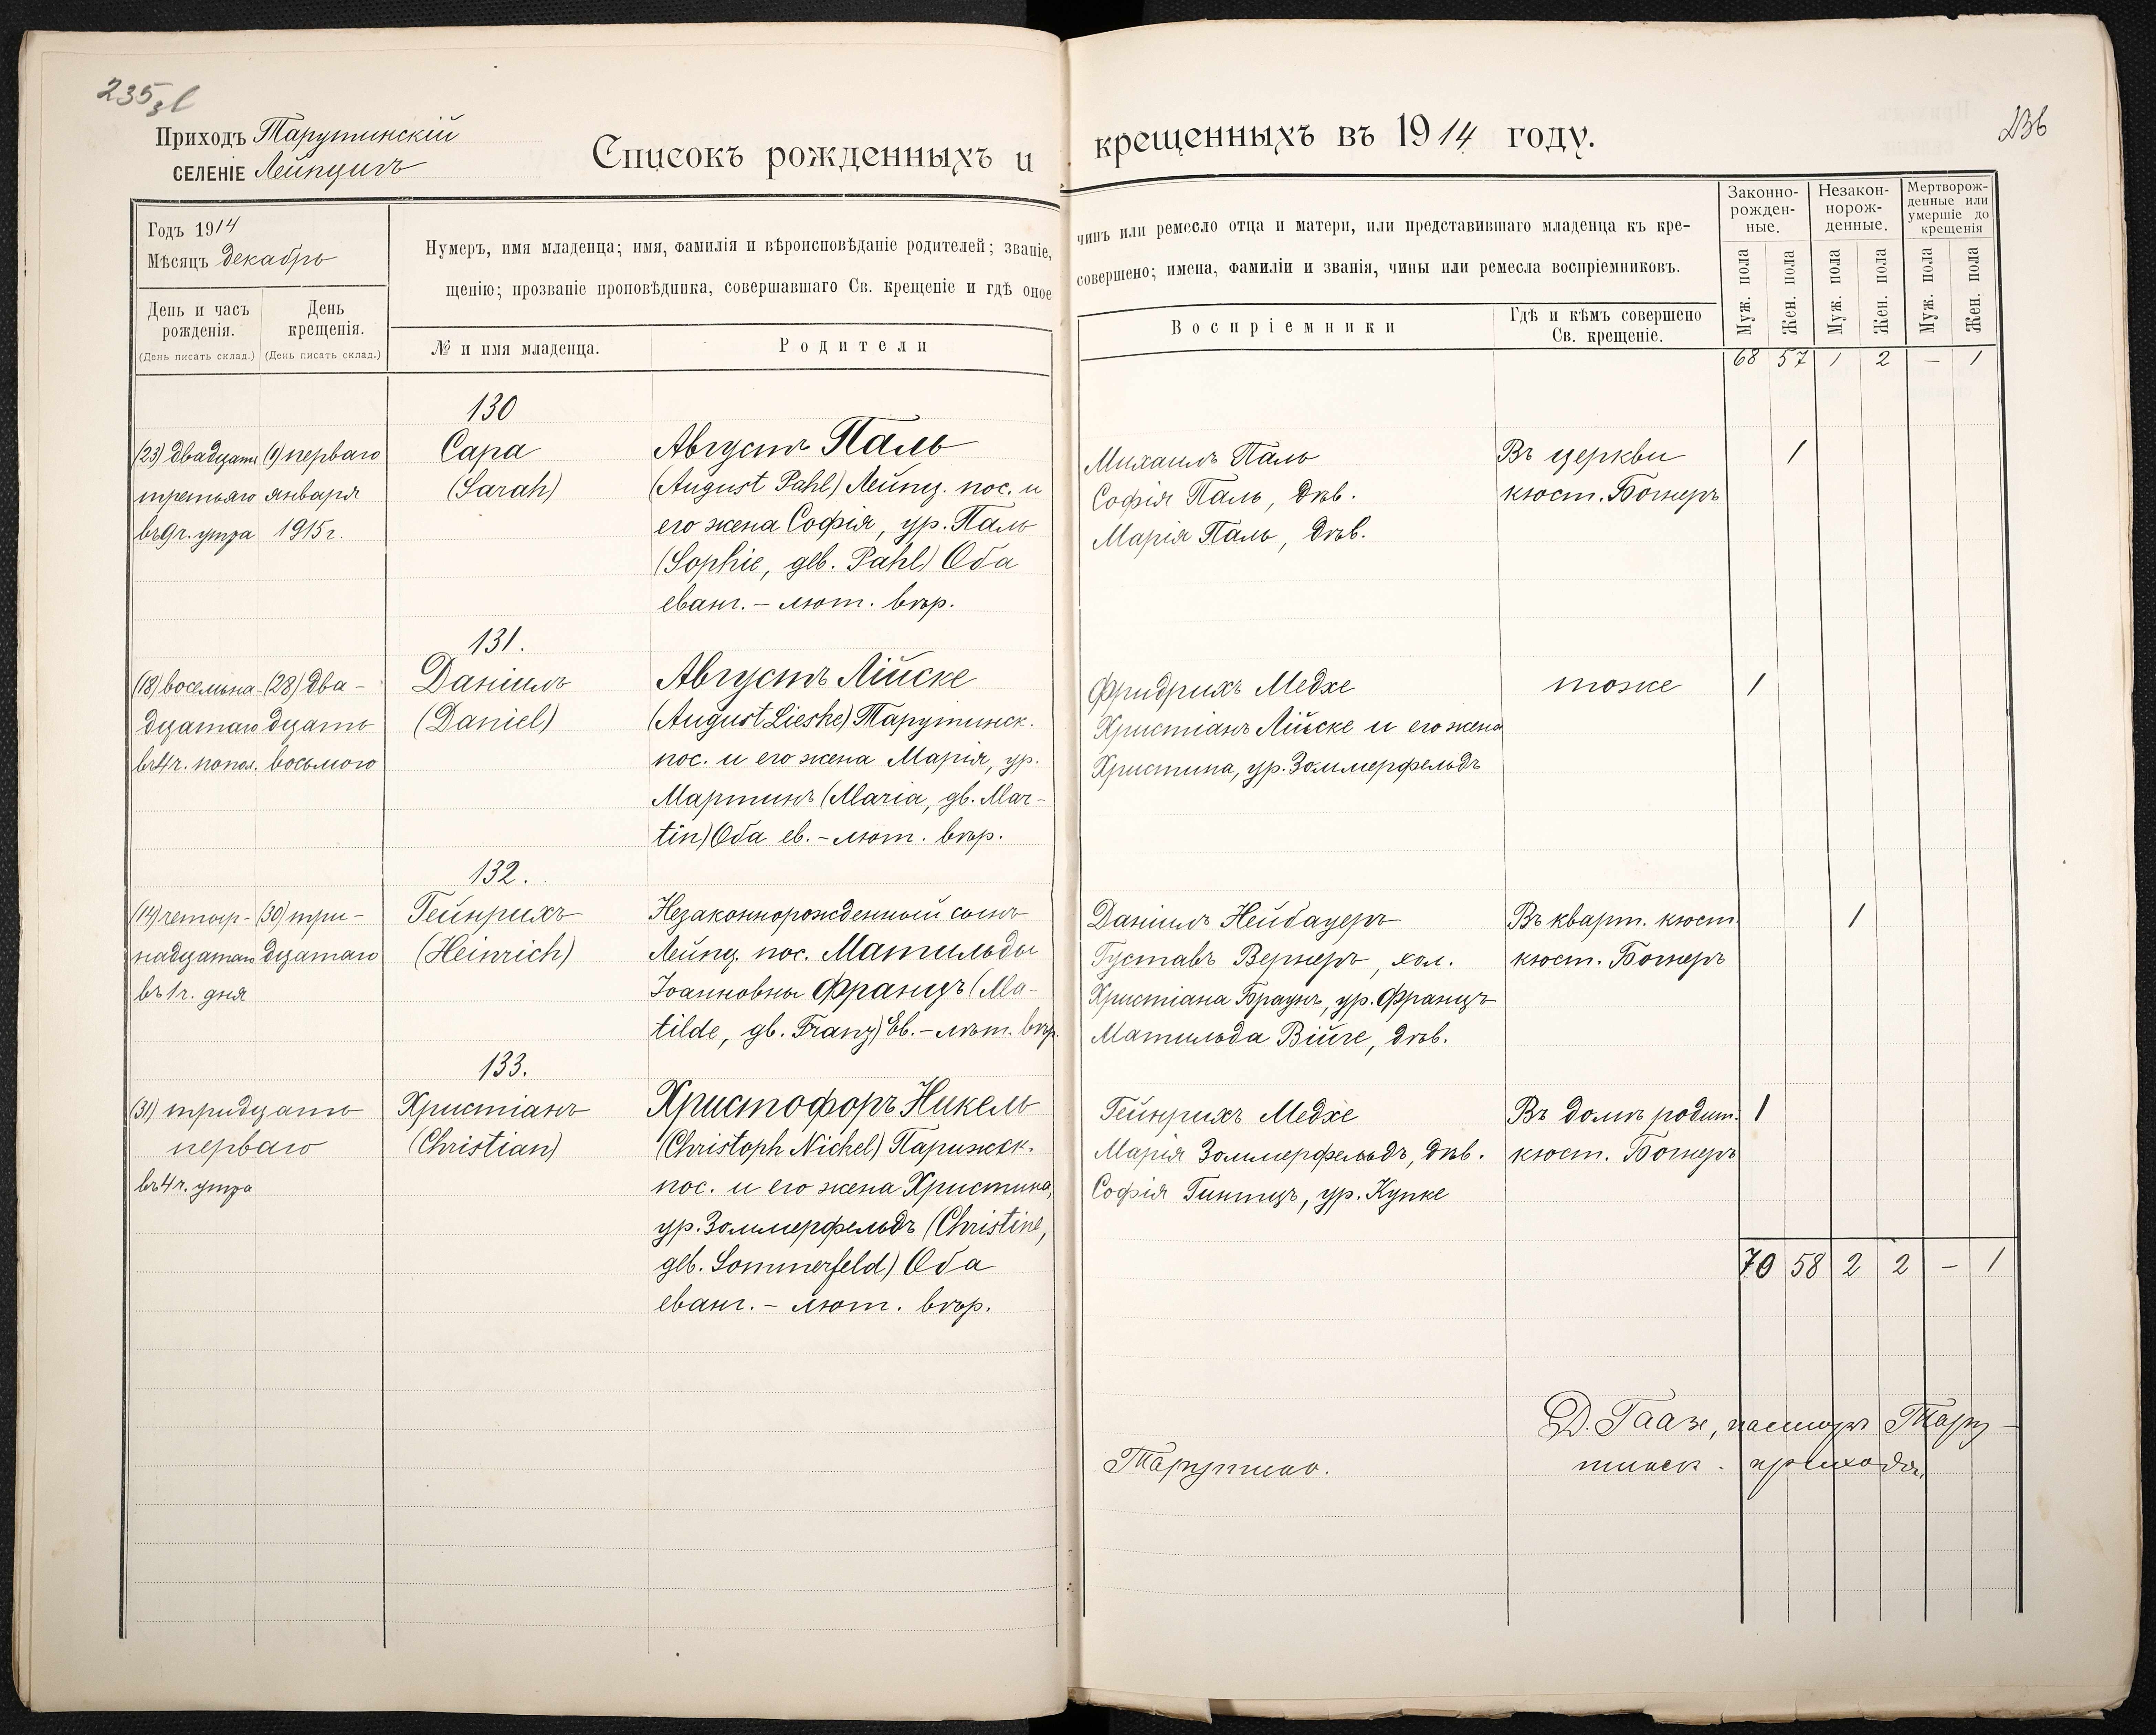 235
Приходъ Тарутинскій
СЕЛЕНІЕ Лейпцигъ
Списокъ рожденныхъ и
Годъ 1914
Мѣсяцъ декабрь
Нумеръ, имя младенца; имя, фамилія и вѣроисповѣданіе родителей; званіе,
щенію; прозваніе проповѣдника, совершавшаго Св. крещеніе и гдѣ оное
День и часъ рожденія.
(День писать склад.)
День крещенія.
(День писать склад.)
№ и имя младенца.
Родители
130
(23) двадцать (1) перваго
третьяго января
въ 9 ч. утра 1915 г.
Сара
(Sarah)
Августъ Паль
(August Pahl) Лейпц. пос. и
его жена Софія, ур. Паль
(Sophie, geb. Pahl) Оба
еванг. – лют. вѣр.
131.
(18) восемна- (28) два-
дцатаго дцать
въ 4 ч. попол. восьмого
Даніилъ
(Daniel)
Августъ Лійске
(August Lieske) Тарутинск.
пос. и его жена Марія, ур.
Мартинъ (Maria, gb. Mar-
tin) Оба ев. – лют. вѣр.
132.
(14) четыр- (30) три-
надцатаго дцатаго
въ 1 ч. дня
Гейнрихъ
(Heinrich)
Незаконнорожденный сынъ
Лейпц. пос. Матильды
Іоанновны Францъ (Ma-
tilde, gb. Franz) Ев. – лют. вѣр.
133.
(31) тридцать
перваго
въ 4 ч. утра
Христіанъ
(Christian)
Христофоръ Никель
(Christoph Nickel) Парижск.
пос. и его жена Христина,
ур. Зоммерфельдъ (Christine,
geb. Sommerfeld) Оба
еванг. – лют. вѣр.
236
крещенныхъ въ 1914 году.
чинъ или ремесло отца и матери, или представившаго младенца къ кре-
совершено; имена, фамиліи и званія, чины или ремесла воспріемниковъ.
Воспріемники
Гдѣ и кѣмъ совершено
Св. крещеніе.
Законно-
рожден-
ные.
Незакон-
норож-
денные.
Мертворож-
денные или
умершіе до
крещенія
Муж. пола
Жен. пола
Муж. пола
Жен. пола
Муж. пола
Жен. пола
68 57 1 2 – 1
Михаилъ Паль
Софія Паль, дѣв.
Марія Паль, дѣв.
Въ церкви
кюст. Богнеръ
1
Фридрихъ Медхе
Христіанъ Лійске и его жена
Христина, ур. Зоммерфельдъ
тоже
1
Даніилъ Нейбауеръ
Густавъ Вернеръ, хол.
Христіана Браунъ, ур. Францъ
Матильда Війче, дѣв.
Въ кварт. кюст.
кюст. Богнеръ
1
Гейнрихъ Медхе
Марія Зоммерфельдъ, дѣв.
Софія Гинтцъ, ур. Купке
Въ домѣ родит.
кюст. Богнеръ
1
70 58 2 2 – 1
Д. Гаазе, пасторъ Тару-
Тарутино.
тинск. прихода.